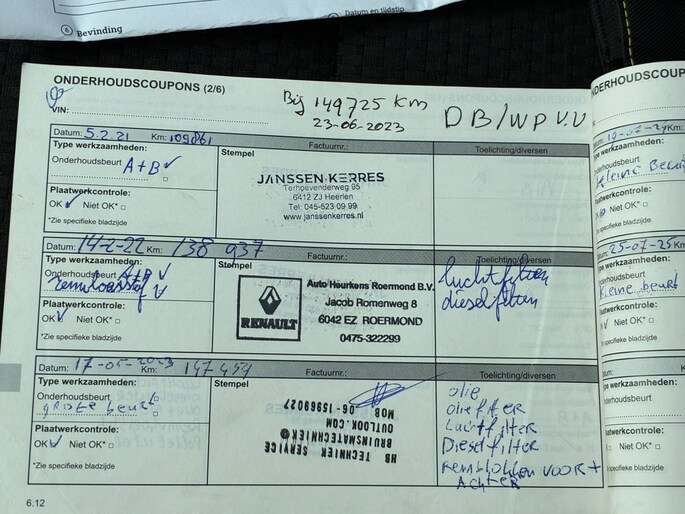 Datum en tijdstip
6 Bevinding
ONDERHOUDSCOUPONS (2/6)
Bij 149725 km
23-06-2023
DB/WP V.V
VIN:
Datum: 5.2.21 Km: 109861 Factuurnr.: Toelichting/diversen
Type werkzaamheden:
Onderhoudsbeurt A+B
Stempel
Plaatwerkcontrole:
OK Niet OK*
*Zie specifieke bladzijde
JANSSEN-KERRES
Terhoevenderweg 95
6412 ZJ Heerlen
Tel: 045-523 09 99
www.janssenkerres.nl
Datum: 14-2-22 Km: 138 937 Factuurnr.: Toelichting/diversen
Type werkzaamheden:
Onderhoudsbeurt A+B
remvloeistof
Stempel
Plaatwerkcontrole:
OK Niet OK*
*Zie specifieke bladzijde
RENAULT
Auto Heurkens Roermond B.V.
Jacob Romenweg 8
6042 EZ ROERMOND
0475-322299
luchtfilter
dieselfilter
Datum: 17-05-2023 147454 Factuurnr.: Toelichting/diversen
Type werkzaamheden:
Onderhoudsbeurt
grote beurt
Stempel
Plaatwerkcontrole:
OK Niet OK*
*Zie specifieke bladzijde
HB TECHNIEK SERVICE
BRUINSMATECHNIEK@
OUTLOOK.COM
MOB 06-15969027
olie
olieffter
Luchtfilter
Dieselfilter
Remblokken VOOR +
Achter
6.12
ONDERHOUDSCOUP
VIN:
Datum:
Type werkzaamheden:
Onderhoudsbeurt
kleine Beurt
Plaatwerkcontrole:
Niet OK*
*Zie specifieke bladzijde
Datum: 25-07-25 Km
Type werkzaamheden:
Onderhoudsbeurt
kleine beurt
Plaatwerkcontrole:
OK Niet OK*
*Zie specifieke bladzijde
Datum:
Type werkzaamheden:
Onderhoudsbeurt
Plaatwerkcontrole:
OK Niet OK*
*Zie specifieke bladzijde